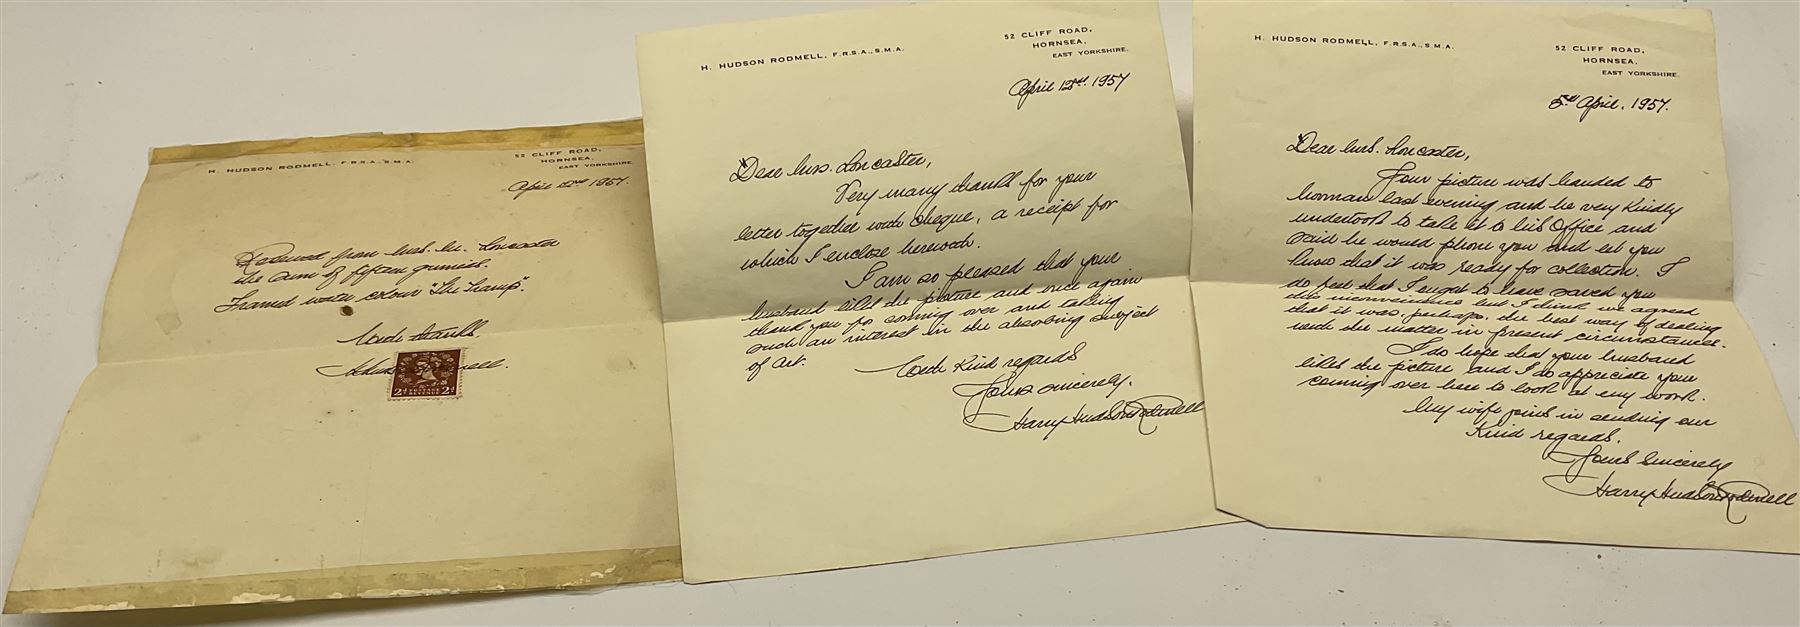 H. HUDSON RODMELL, F.R.S.A., S.M.A.
52 CLIFF ROAD,
HORNSEA,
EAST YORKSHIRE.
April 12th 1957.
Received from Mrs. M. Loncaster
the sum of fifteen guineas.
Framed water colour "The Tramp".
With thanks.
2D 2D
H. HUDSON RODMELL, F.R.S.A., S.M.A.
52 CLIFF ROAD,
HORNSEA,
EAST YORKSHIRE.
April 12th 1957
Dear Mrs. Loncaster,
Very many thanks for your
letter together with cheque, a receipt for
which I enclose herewith.
I am so pleased that your
husband likes the picture and once again
thank you for coming over and taking
such an interest in the absorbing subject
of Art.
With Kind regards
Yours sincerely.
Harry Hudson Rodmell
H. HUDSON RODMELL, F.R.S.A., S.M.A.
52 CLIFF ROAD,
HORNSEA,
EAST YORKSHIRE.
5th April. 1957.
Dear Mrs. Loncaster,
Your picture was handed to
Norman last evening and he very kindly
undertook to take it to his Office and
said he would phone you and let you
know that it was ready for collection. I
do feel that I ought to have saved you
this inconvenience but I think we agreed
that it was, perhaps, the best way of dealing
with the matter in present circumstances.
I do hope that your husband
likes the picture and I do appreciate your
coming over here to look at my work.
My wife joins in sending our
Kind regards.
Yours sincerely
Harry Hudson Rodmell